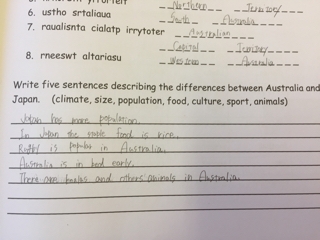 6. ustho srtaliaua
Northern Territory
South Australia
7. raualisnta cialatp irrytoter
Australian
Capital Territory
8. rneeswt altariasu
Western Australia
Write five sentences describing the differences between Australia and
Japan. (climate, size, population, food, culture, sport, animals)
Japan has more population.
In Japan the staple food is rice.
Rugby is popular in Australia.
Australia is in early.
There are koalas and others animals in Australia.